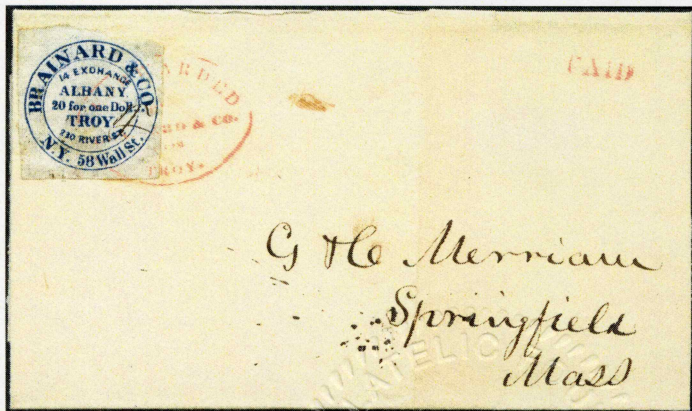 BRAINARD & CO.
14 EXCHANGE
ALBANY
20 for one Doll.
TROY
230 RIVER ST.
N.Y. 58 Wall St.
& Co.
TROY.
PAID
G & C Merriam
Springfield
Mass